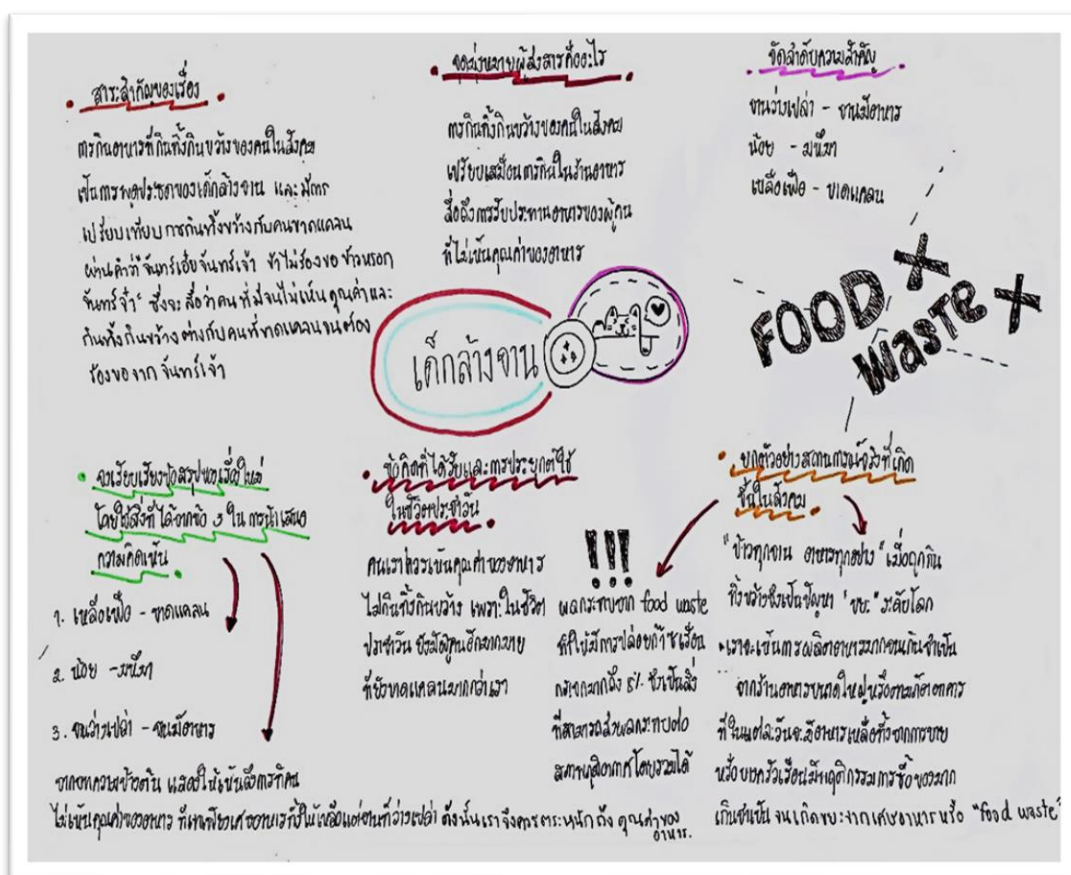 สาระสำคัญของเรื่อง
การกินอาหารที่กินทิ้งกินขว้างของคนในสังคม
เป็นการพูดประชดของเด็กล้างจาน และมีการ
เปรียบเทียบการกินทิ้งขว้างกับคนขาดแคลน
ผ่านคำว่า "จันทร์เอ๋ยจันทร์เจ้า ข้าไม่ร้องขอ ข้าวหรอก
จันทร์จ้า" ซึ่งจะสื่อว่าคนที่มีจนไม่เห็นคุณค่าและ
กินทิ้งกินขว้าง ต่างกับคนที่ขาดแคลนจนต้อง
ร้องขอจาก จันทร์เจ้า
จุดมุ่งหมายผู้ส่งสารคืออะไร
การกินทิ้งกินขว้างของคนในสังคม
เปรียบเสมือนการกินในร้านอาหาร
สื่อถึงการรับประทานอาหารของผู้คน
ที่ไม่เห็นคุณค่าของอาหาร
จัดลำดับความสำคัญ
จานว่างเปล่า - จานมีอาหาร
น้อย - มหึมา
เหลือเฟือ - ขาดแคลน
FOOD X
WaSTe X
เด็กล้างจาน
จงเรียบเรียงข้อสรุปของเรื่องใหม่
โดยใช้สิ่งที่ได้จากข้อ 3 ในการนำเสนอ
ความคิดเห็น
1. เหลือเฟือ - ขาดแคลน
2. น้อย - มหึมา
3. จนว่างเปล่า - จนมีอาหาร
จากบทความข้างต้น แสดงให้เห็นถึงการที่คน
ไม่เห็นคุณค่าของอาหาร ที่เศษอาหารทิ้งให้เหลือแต่จานที่ว่างเปล่า ดังนั้นเราจึงควรตระหนักถึง คุณค่าของ
อาหาร.
ข้อคิดที่ได้รับและการประยุกต์ใช้
ในชีวิตประจำวัน
คนเราควรเห็นคุณค่าของอาหาร
ไม่กินทิ้งกินขว้าง เพราะในชีวิต
ประจำวัน ยังมีผู้คนอีกมากมาย
ที่ยังขาดแคลนมากกว่าเรา
!!!
ผลกระทบจาก food waste
ทำให้มีการปล่อยก๊าซเรือน
กระจกมากถึง 8% ซึ่งเป็นสิ่ง
ที่สามารถส่งผลกระทบต่อ
สภาพภูมิอากาศโดยรวมได้
ยกตัวอย่างสถานการณ์จริงที่เกิด
ขึ้นในสังคม
"ข้าวทุกจาน อาหารทุกอย่าง" เมื่อถูกกิน
ทิ้งขว้างจึงเป็นปัญหา "ขยะ" ระดับโลก
เราจะเห็นการผลิตอาหารมากจนเกินจำเป็น
จากร้านอาหารขนาดใหญ่หรือตามภัตตาคาร
ที่ในแต่ละวันจะมีอาหารเหลือทิ้งจากการขาย
หรือบางครัวเรือนมีพฤติกรรมการซื้อของมาก
เกินจำเป็น จนเกิดขยะจากเศษอาหารหรือ "food waste"